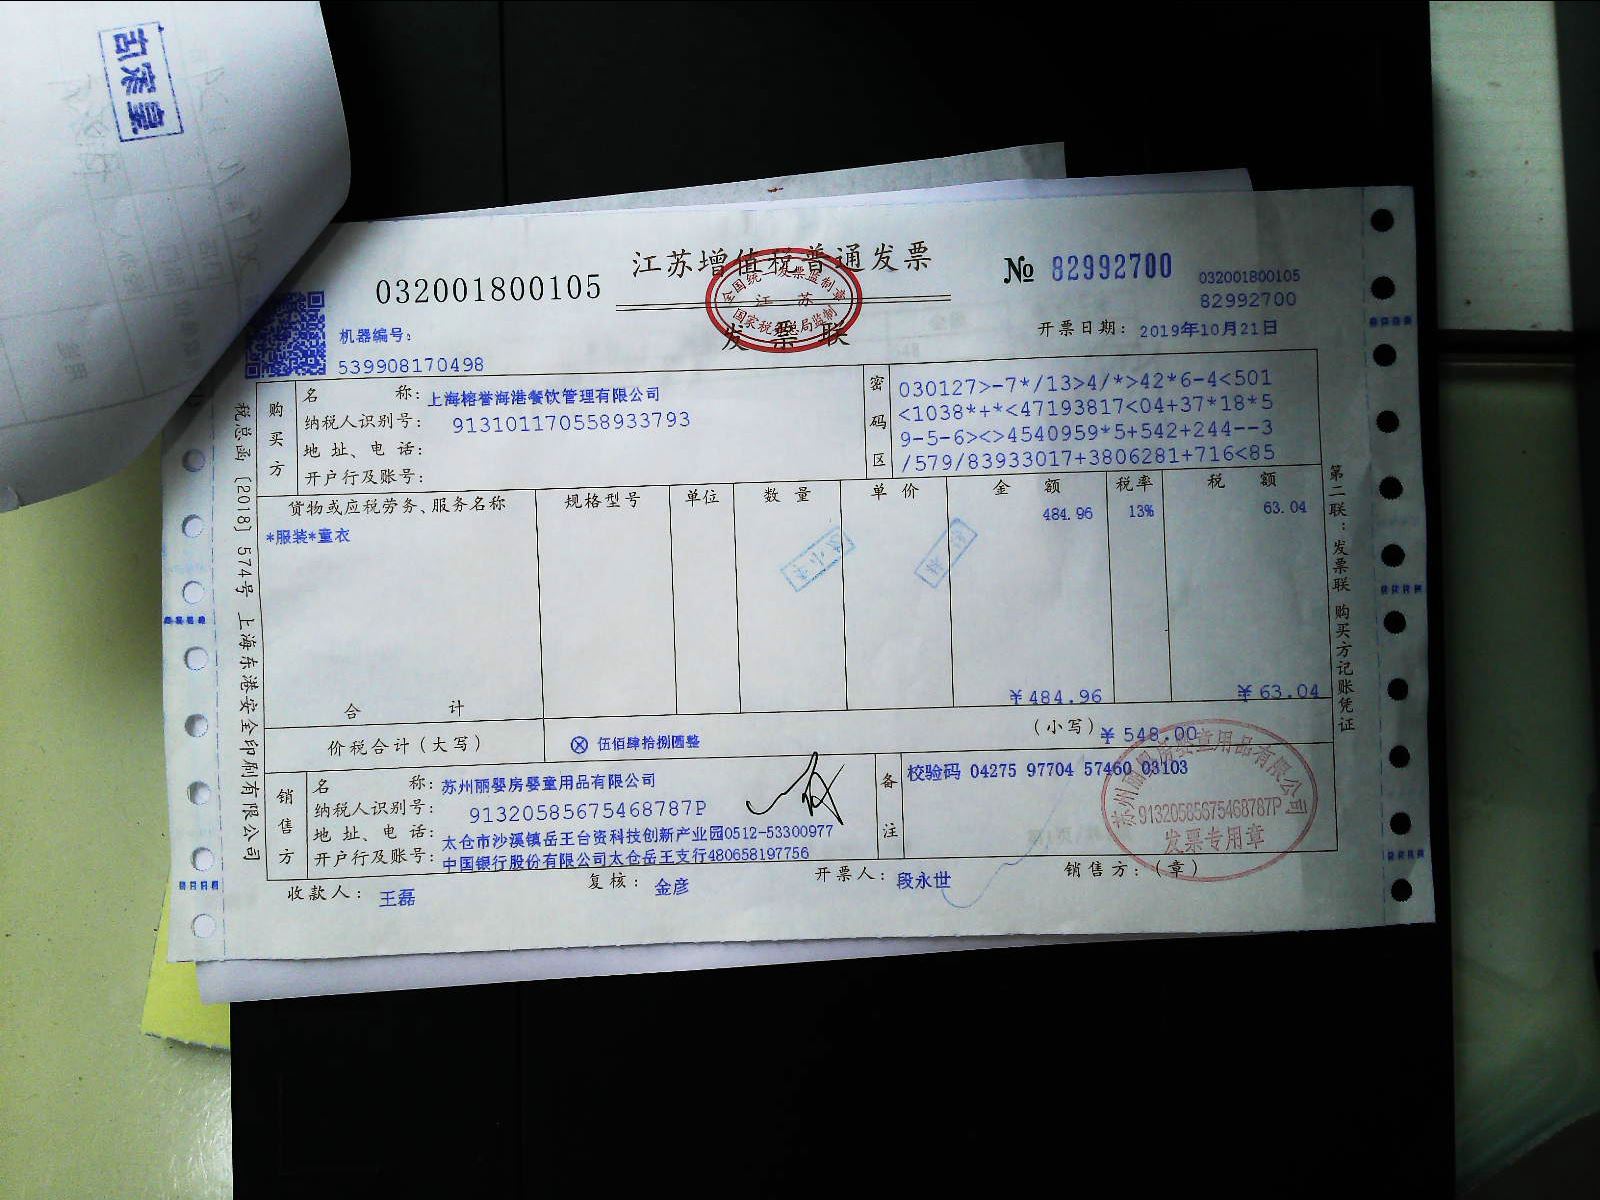 江苏增值税普通发票
032001800105
№ 82992700
032001800105
82992700
全国统一发票监制章
江苏
国家税务总局监制
发票联
机器编号:
539908170498
开票日期: 2019年10月21日
税总函〔2018〕574号 上海东港安全印刷有限公司
购买方
名称: 上海榕誉海港餐饮管理有限公司
纳税人识别号: 913101170558933793
地址、电话:
开户行及账号:
密码区
030127>-7*/13>4/*>42*6-4<501
<1038*+*<47193817<04+37*18*5
9-5-6><>4540959*5+542+244--3
/579/83933017+3806281+716<85
货物或应税劳务、服务名称 规格型号 单位 数量 单价 金额 税率 税额
*服装*童衣 484.96 13% 63.04
合计 ¥484.96 ¥63.04
价税合计(大写) ⊗ 伍佰肆拾捌圆整 (小写) ¥548.00
销售方
名称: 苏州丽婴房婴童用品有限公司
纳税人识别号: 91320585675468787P
地址、电话: 太仓市沙溪镇岳王台资科技创新产业园0512-53300977
开户行及账号: 中国银行股份有限公司太仓岳王支行480658197756
备注
校验码 04275 97704 57460 03103
苏州丽婴房婴童用品有限公司
91320585675468787P
发票专用章
收款人: 王磊 复核: 金彦 开票人: 段永世 销售方:(章)
第二联:发票联 购买方记账凭证